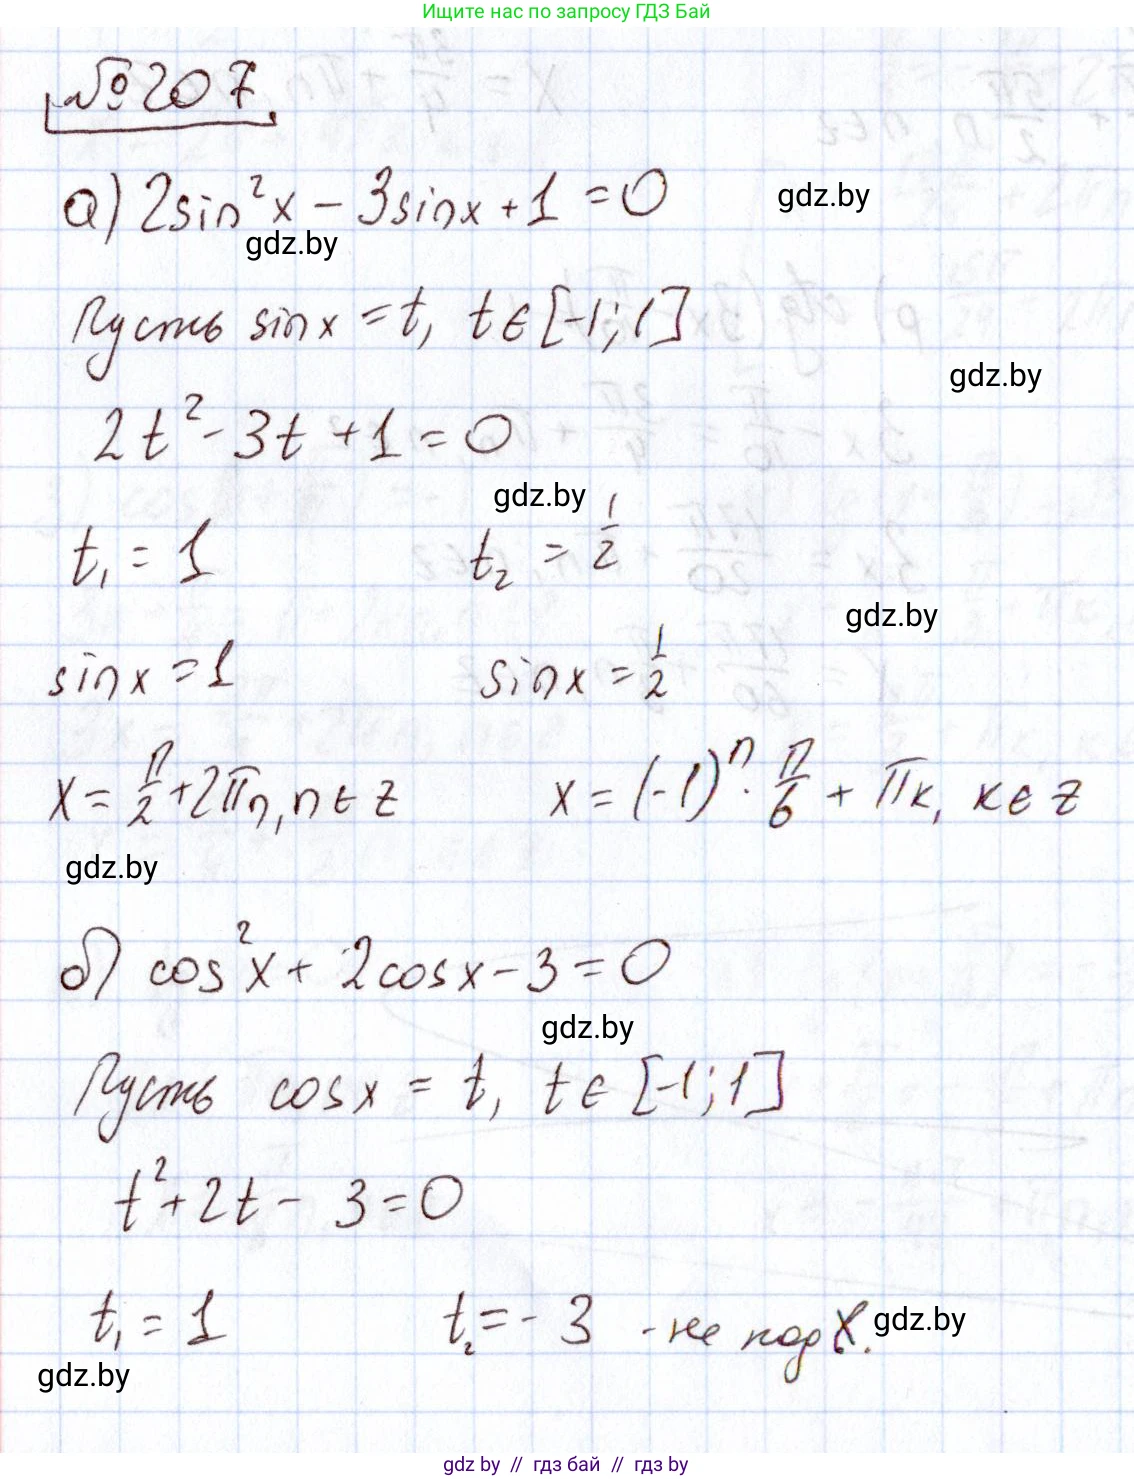 Ищите нас по запросу ГДЗ Бай
№207
а) 2sin²x - 3sinx + 1 = 0
gdz.by
gdz.by
Пусть sinx = t, t ∈ [-1; 1]
gdz.by
2t² - 3t + 1 = 0
gdz.by
t₁ = 1 t₂ = 1/2
gdz.by
sinx = 1 sinx = 1/2
x = π/2 + 2πn, n ∈ z x = (-1)ⁿ · π/6 + πk, k ∈ z
gdz.by
б) cos²x + 2cosx - 3 = 0
gdz.by
Пусть cosx = t, t ∈ [-1; 1]
t² + 2t - 3 = 0
t₁ = 1 t₂ = - 3 - не подх.
gdz.by
gdz.by
gdz by // гдз бай // гдз by